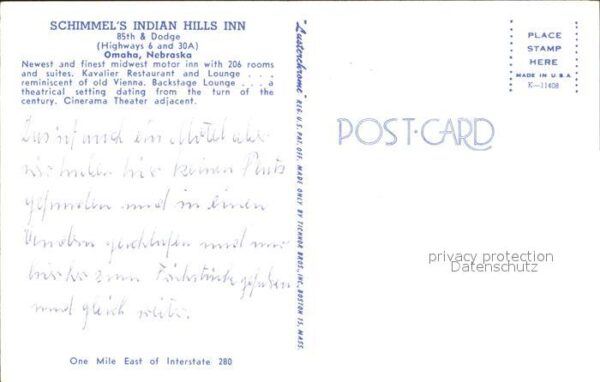 SCHIMMEL'S INDIAN HILLS INN
85th & Dodge
(Highways 6 and 30A)
Omaha, Nebraska
Newest and finest midwest motor inn with 206 rooms
and suites. Kavalier Restaurant and Lounge . . .
reminiscent of old Vienna. Backstage Lounge . . . a
theatrical setting dating from the turn of the
century. Cinerama Theater adjacent.
Das ist auch ein Motel aber
wir haben hier keinen Platz
gefunden und in einem
geschlafen und nur
hier zum Frühstück
und gleich weiter.
One Mile East of Interstate 280
"Lusterchrome" REG. U.S. PAT. OFF. MADE ONLY BY TICHNOR BROS., INC., BOSTON 15, MASS.
PLACE
STAMP
HERE
MADE IN U.S.A
K-11408
POST-CARD
privacy protection
Datenschutz